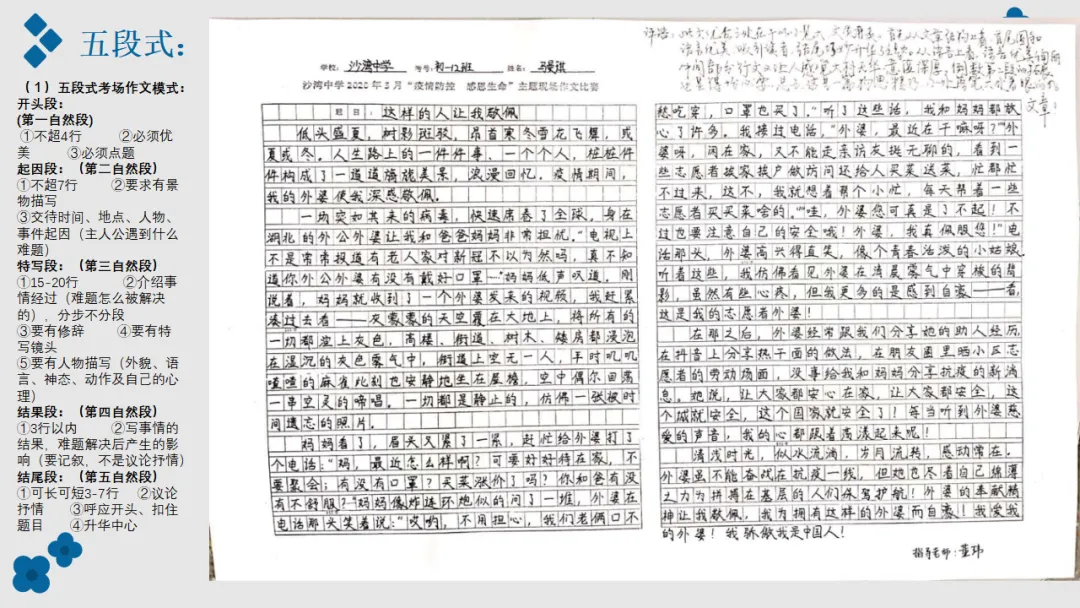 五段式：
（1）五段式考场作文模式：
开头段：
(第一自然段)
①不超4行 ②必须优
美 ③必须点题
起因段：（第二自然段）
①不超7行 ②要求有景
物描写
③交待时间、地点、人物、
事件起因（主人公遇到什么
难题）
特写段：（第三自然段）
①15-20行 ②介绍事
情经过（难题怎么被解决
的），分步不分段
③要有修辞 ④要有特
写镜头
⑤要有人物描写（外貌、语
言、神态、动作及自己的心
理）
结果段：（第四自然段）
①3行以内 ②写事情的
结果，难题解决后产生的影
响（要记叙，不是议论抒情）
结尾段：（第五自然段）
①可长可短3-7行 ②议论
抒情 ③呼应开头、扣住
题目 ④升华中心
学校：沙湾中学 考号：初一12班 姓名：
沙湾中学2020年3月“疫情防控 感恩生命”主题现场作文比赛
题目：这样的人让我敬佩
低头盛夏，树影斑驳，昂首寒冬雪花飞舞，或
夏或冬。人生路上的一件件事、一个个人，桩桩件
件构成了一道道旖旎美景，浪漫回忆。疫情期间，
我的外婆使我深感敬佩。
一场突如其来的病毒，快速席卷了全球，身在
湖北的外公外婆让我和爸爸妈妈非常担忧。“电视上
不是常常报道有老人家对新冠不以为然吗，真不知
道你外公外婆有没有戴好口罩一”妈妈低声叹道，刚
说着，妈妈就收到了一个外婆发来的视频，我赶紧
凑过去看——灰蒙蒙的天空覆在大地上，将所有的
一切都蒙上灰色，高楼、街道、树木、矮房都浸泡
在湿沉的灰色雾气中，街道上空无一人，平时叽叽
喳喳的麻雀此刻也安静地坐在屋檐，空中偶尔回荡
一串空灵的啼唱。一切都是静止的，仿佛一张被时
间遗忘的照片。
妈妈看了，眉头又紧了一紧，赶忙给外婆打了
个电话：“妈，最近怎么样啊？可要好好待在家，不
要聚会；有没有口罩？买菜涨价了吗？你和爸有没
有不舒服？”妈妈像炸连环炮似的问了一堆，外婆在
电话那头笑着说：“哎哟，不用担心，我们老俩口不
愁吃穿，口罩也买了。”听了这些话，我和妈妈都放
心了许多。我接过电话，“外婆，最近在干嘛呀？”“外
婆呀，闲在家，又不能走亲访友挺无聊的，看到一
些志愿者挨家挨户做访问还给人买菜送菜，忙都忙
不过来，这不，我就想着帮个小忙，每天帮着一些
志愿者买买菜啥的。”“哇，外婆您可真是了不起！不
过也要注意自己的安全哦！外婆，我真佩服您！”电
话那头，外婆高兴得直笑，像个青春活泼的小姑娘。
听着这些，我仿佛看见外婆在清晨雾气中穿梭的背
影，虽然有些心疼，但我更多的是感到自豪——看，
这是我的志愿者外婆！
在那之后，外婆经常跟我们分享她的助人经历，
在抖音上分享热干面的做法，在朋友圈里晒小区志
愿者的劳动场面，没事给我和妈妈分享抗疫的新消
息。她说，让大家都安心在家，让大家都安全，这
个城就安全，这个国家就安全了！每当听到外婆慈
爱的声音，我的心都跟着高漾起来呢！
清浅时光，似水流淌，岁月流转，感动常在。
外婆虽不能奋战在抗疫一线，但她也尽着自己绵薄
之力为拼搏在基层的人们保驾护航！外婆的奉献精
神让我敬佩，我为拥有这样的外婆而自豪！我爱我
的外婆！我骄傲我是中国人！
指导老师：董玮